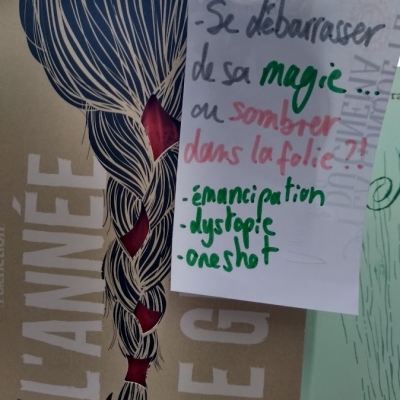 - Se débarrasser
de sa magie...
ou sombrer
dans la folie ?!
- émancipation
- dystopie
- oneshot
L'ANNÉE